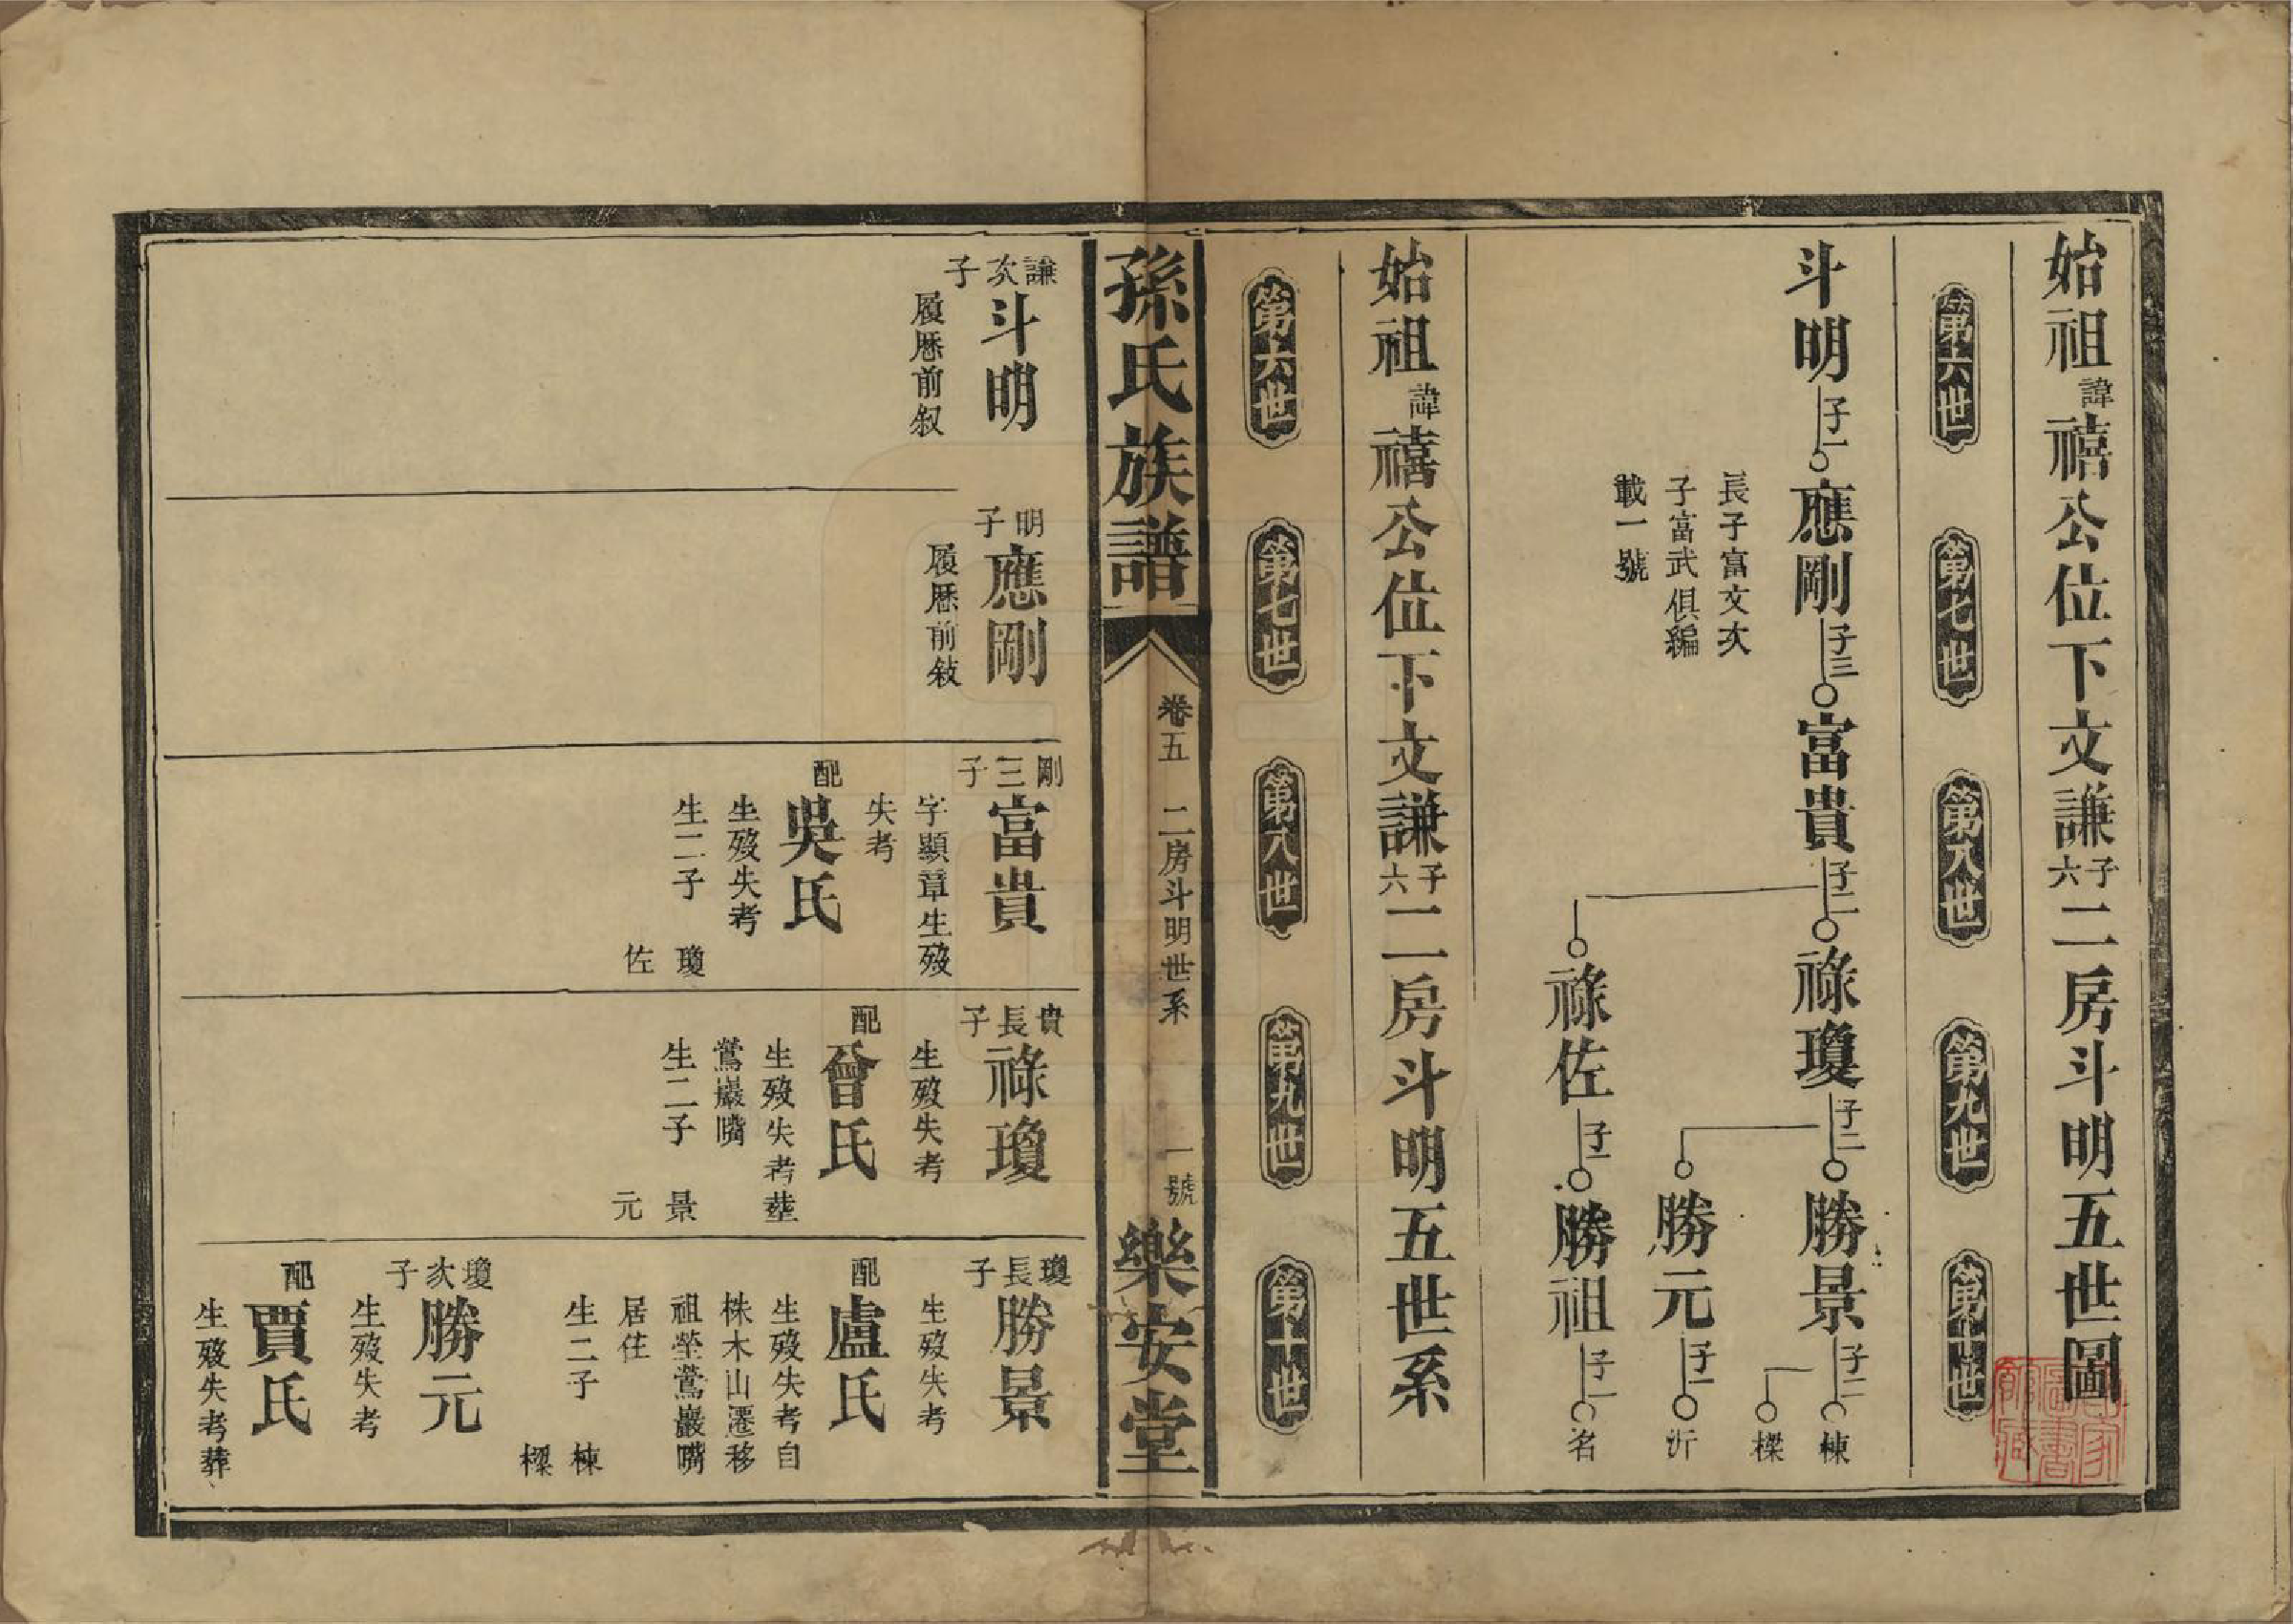 始祖諱禧公位下文謙子六二房斗明五世圖
第六世
第七世
第八世
第九世
第十世
斗明子一應剛子三富貴子二祿瓊子二勝景子二棟
樑
勝元子一沂
祿佐子一勝祖子一名
長子富文次
子富武俱編
載一號
始祖諱禧公位下文謙子六二房斗明五世系
第六世
第七世
第八世
第九世
第十世
孫氏族譜
卷五
二房斗明世系
一號
樂安堂
謙次子
斗明
履歷前叙
明子
應剛
履歷前敍
剛三子
富貴
字顯章生歿
失考
配
吳氏
生歿失考
生二子
瓊
佐
貴長子
祿瓊
生歿失考
配
曾氏
生歿失考塟
鶯巖嘴
生二子
景
元
瓊長子
勝景
生歿失考
配
盧氏
生歿失考自
株木山遷移
祖塋鶯巖嘴
居住
生二子
棟
樑
瓊次子
勝元
生歿失考
配
賈氏
生歿失考葬